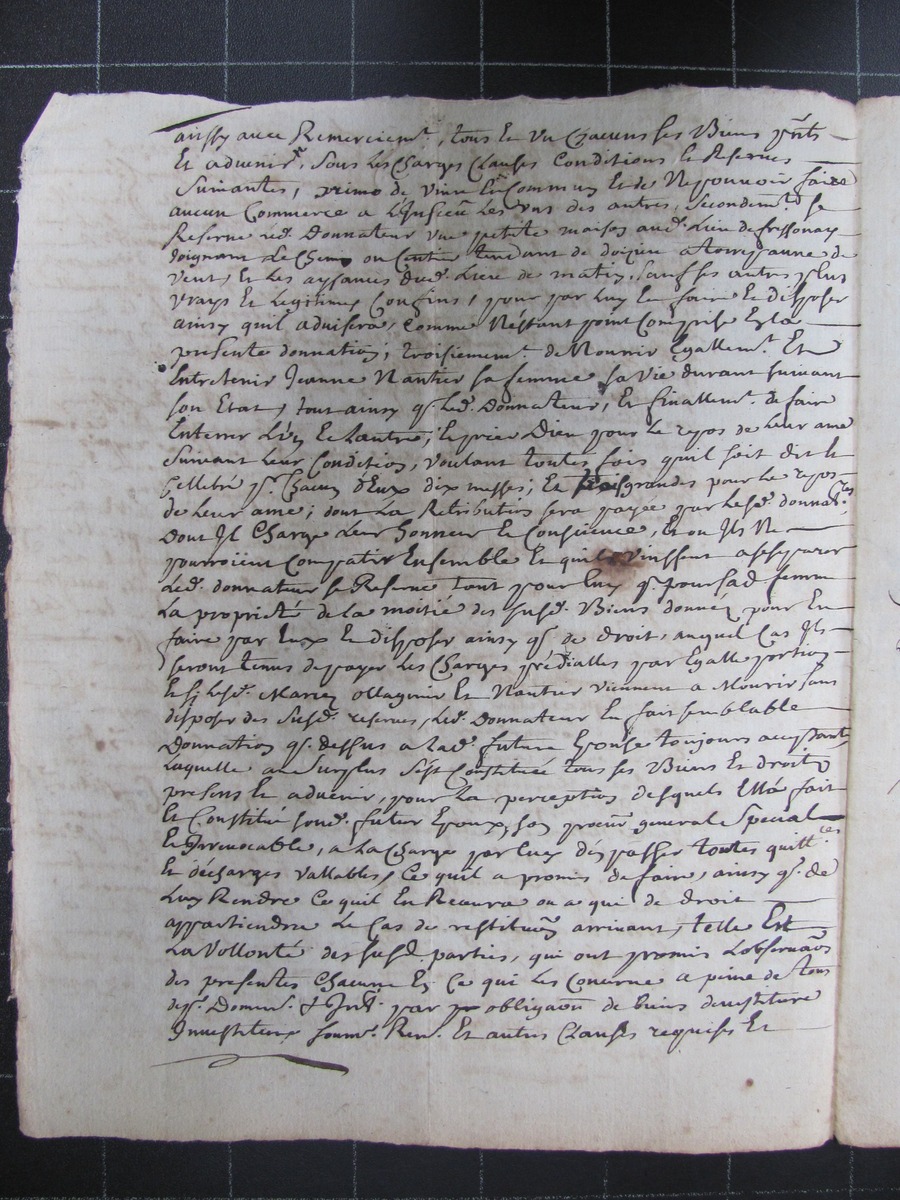 ainsy avec Remerciemt, tous Et Un Chacuns ses Biens pnts
Et advenir, Sous les Charges Clauses Conditions Et Reserves
Suivantes, primo de vivre En Commun Et de Ne pouvoir faire
aucun Commerce a L'Insceu Les uns des autres, Secondemt se
Reserve Led. Donnateur Une petite maison aud. Lieu de
joignant Le Chemin tendant de a de
vent, Et Les aysances dud. Lieu de matin, Sauf ses autres plus
vrays Et Legitimes Confins, pour par Luy En faire Et disposer
ainsy quil advisera, Comme N'Estant point Comprise En la
presente donnation; troisiement. de Nourrir Egallemt. Et
Entretenir Jeanne Nantier sa femme sa vie durant suivant
son Etat, tout ainsy q. Led. Donnateur, Et finallemt. de faire
Enterrer L'un Et Lautre, Et prier Dieu pour Le repos de Leur ame
Suivant Leur Condition, voulant toutes fois quil soit dit Et
Cellebré pr. Chacun d'Eux dix messes; Et grandes pour Le repos
de Leur ame; dont La Retribution sera payée par Lesd. donnatres
Dont Il Charge Leur honneur Et Conscience, Et ou Ils Ne
pourroient Compatir Ensemble Et quils vinssent a se separer
Led. donnateur se Reserve tant pour Luy q. pour sad. femme
La proprieté de la moitié des susd. Biens donnéz pour En
faire par Eux Et disposer ainsy q. de droit, auquel Cas Ils
seront tenus de payer Les Charges prédialles par Egalle portion
Et si Lesd. Mariez ollagnier Et Nantier viennent a Mourir sans
disposer des susd. reserves, Led. Donnateur En fait semblable
Donnation q. dessus a Lad. future Epouse toujours acceptante,
Laquelle au Surplus s'est Constituée tous ses Biens Et droits
presens Et advenir, pour La perception desquels Elle a fait
Et Constitué sond. futur Epoux, son procur. general Special
Et Irrevocable, a La Charge par Luy d'En passer toutes quittces
Et décharges vallables, Ce quil a promis de faire, ainsy q. de
Luy Rendre Ce quil En Recevra ou a qui de droit
appartiendra Le Cas de restitution arrivant, telle Est
La Vollonté des susd. parties, qui ont promis L'observaon
des presentes Chacune En Ce qui Les Concerne a peine de tous
desp. Domm. & Int. par obligaon de biens
soum. Ren. Et autres Clauses requises Et